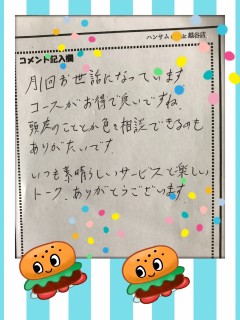 ハンサム 越谷店
コメント記入欄
月1回お世話になっています
コースがお得で良いですね。
頭皮のこととか色々相談できるのも
ありがたいです。
いつも素晴らしいサービスと楽しい
トーク、ありがとうございます。